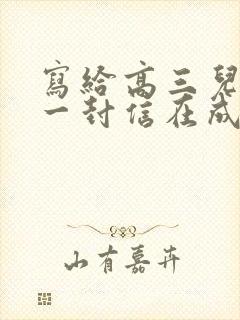 寫給高三兒
一封信在成
山有嘉卉